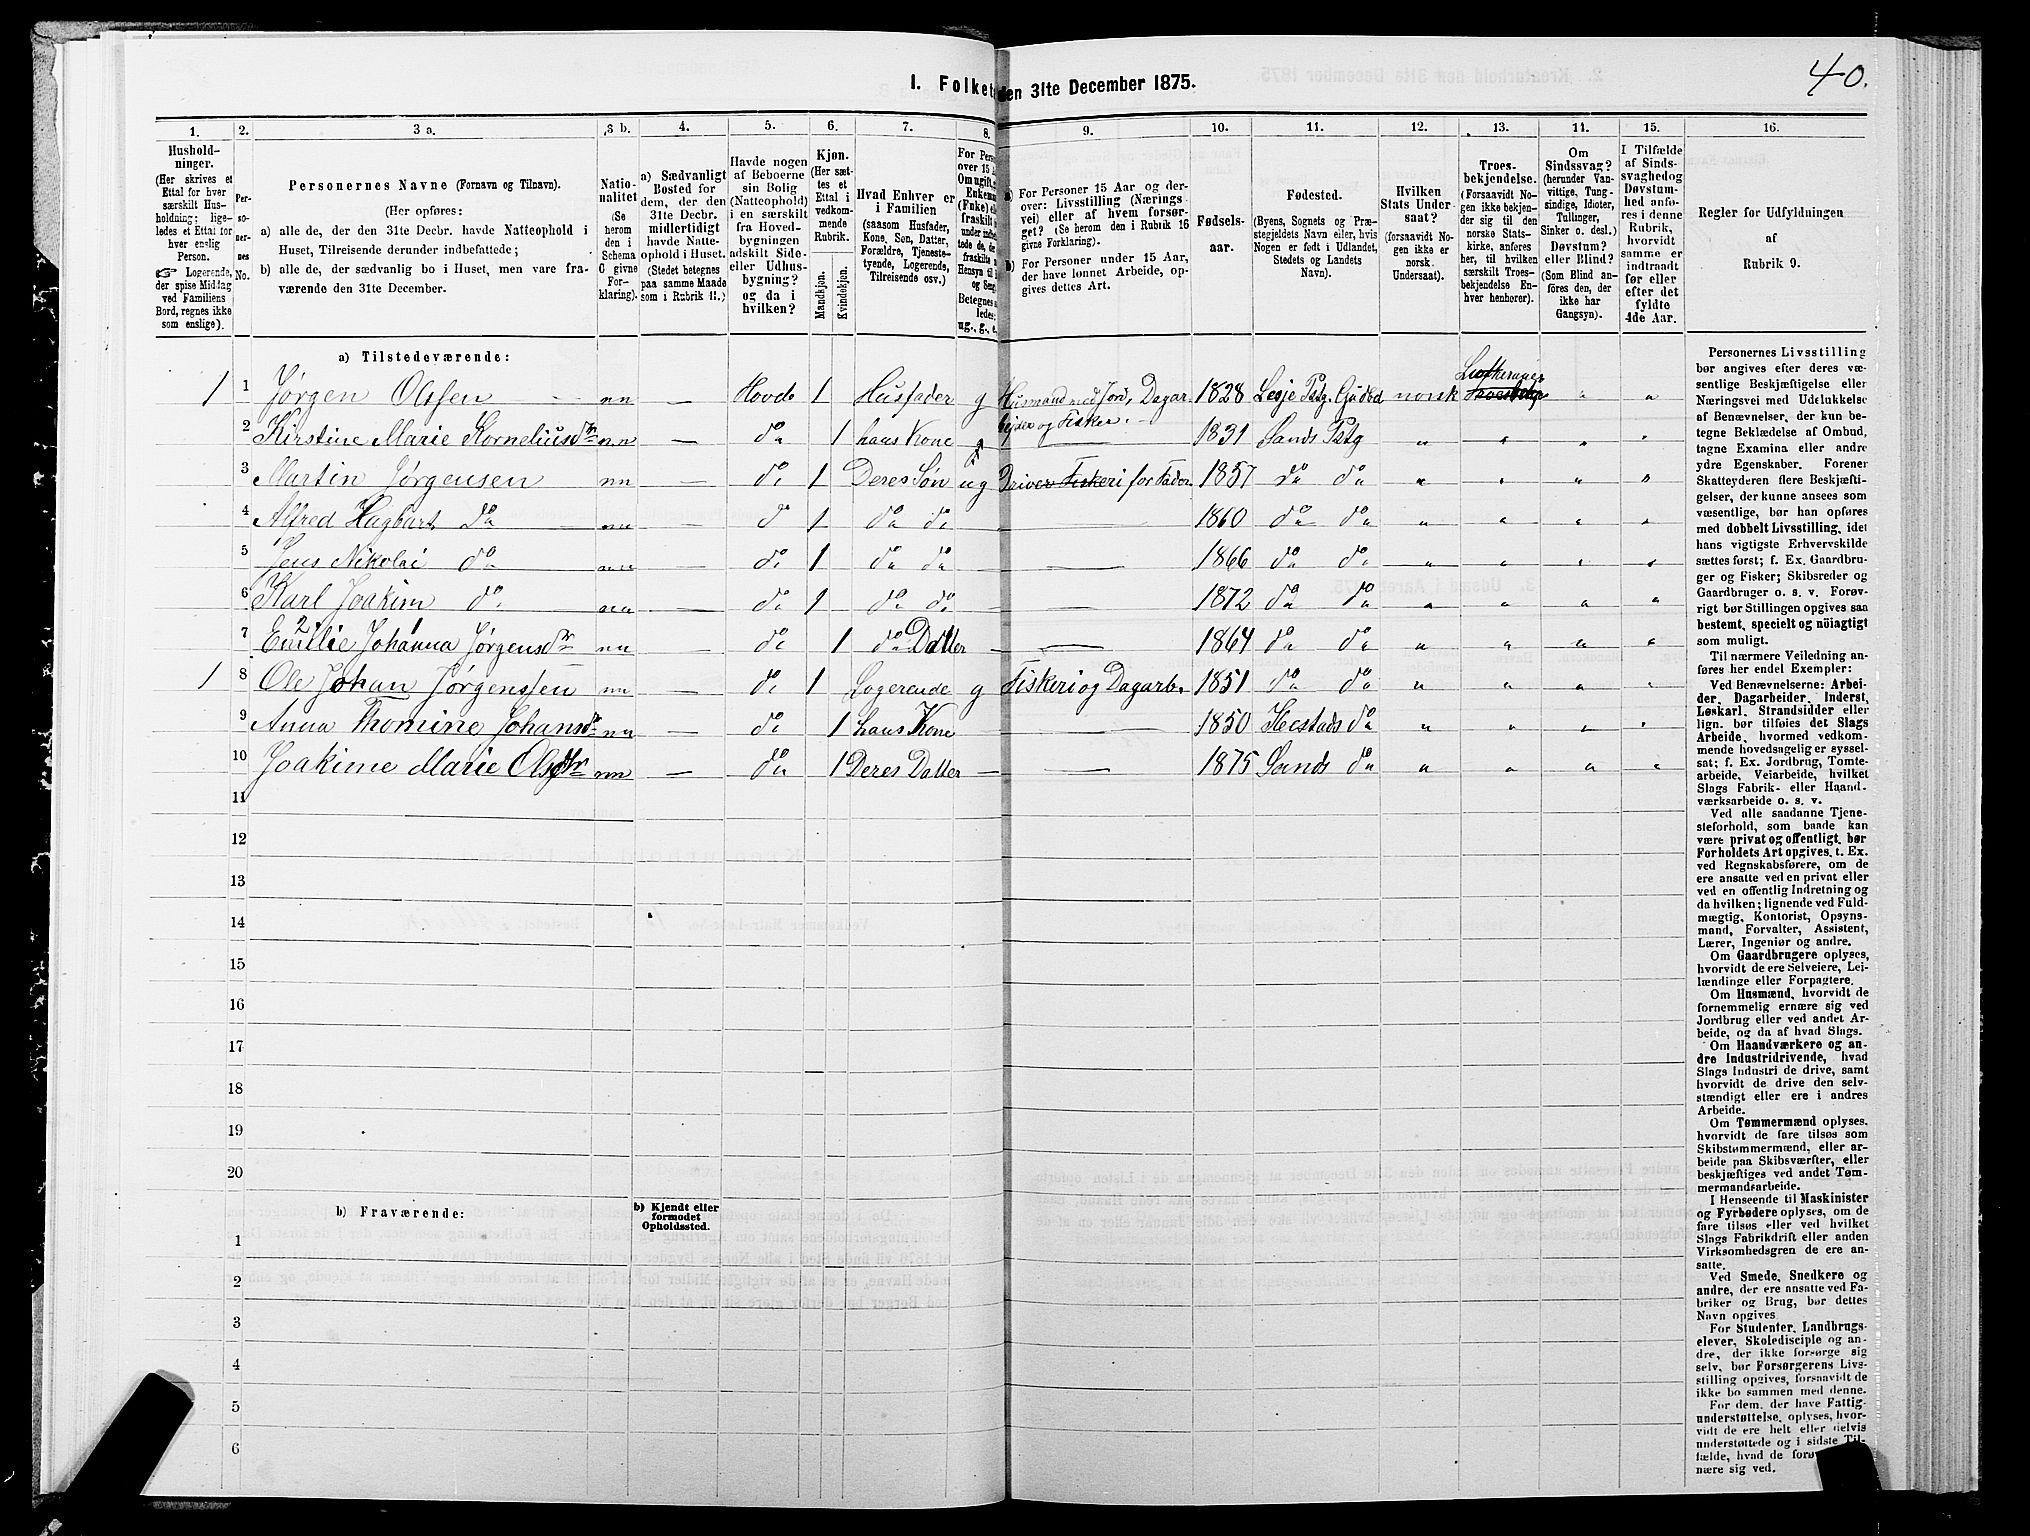 40.
I. Folket den 31te December 1875.
1. 2. 3 a. 3 b. 4. 5. 6. 7. 8. 9. 10. 11. 12. 13. 14. 15. 16.
Hushold-
ninger.
(Her skrives et
Ettal for hver
særskilt Hus-
holdning; lige-
ledes et Ettal for
hver enslig
Person.
☞ Logerende,
der spise Middag
ved Familiens
Bord, regnes ikke
som enslige).
Per-
so-
ner-
nes
No.
Personernes Navne (Fornavn og Tilnavn).
(Her opføres:
a) alle de, der den 31te Decbr. havde Natteophold i
Huset, Tilreisende derunder indbefattede;
b) alle de, der sædvanlig bo i Huset, men vare fra-
værende den 31te December.
Natio-
nalitet
(Se
herom
den i
Schema
C givne
For-
klaring).
a) Sædvanligt
Bosted for
dem, der den
31te Decbr.
midlertidigt
havde Natte-
ophold i Huset.
(Stedet betegnes
paa samme Maade
som i Rubrik 11.)
Havde nogen
af Beboerne
sin Bolig
(Natteophold)
i en særskilt
fra Hoved-
bygningen
adskilt Side-
eller Udhus-
bygning?
og da i
hvilken?
Kjøn.
(Her sæt-
tes et
Ettal i
vedkom-
mende
Rubrik.
Mandkjøn.
Kvindekjøn.
Hvad Enhver er
i Familien
(saasom Husfader,
Kone, Søn, Datter,
Forældre, Tjeneste-
tyende, Logerende,
Tilreisende osv.)
For Pers
over 15 A
Om ugift, g
Enkeman
(Fnke) el
fraskilt
under indb
tede de, d
fraskilte
Hensyn til
og Seng
Betegnes s
ledes:
ug., g., e.
a) For Personer 15 Aar og der-
over: Livsstilling (Nærings-
vei) eller af hvem forsør-
get? (Se herom den i Rubrik 16
givne Forklaring).
b) For Personer under 15 Aar,
der have lønnet Arbeide, op-
gives dettes Art.
Fødsels-
aar.
Fødested.
(Byens, Sognets og Præ-
stegjeldets Navn eller, hvis
Nogen er født i Udlandet,
Stedets og Landets
Navn).
Hvilken
Stats Under-
saat?
(forsaavidt No-
gen ikke er
norsk
Undersaat).
Troes-
bekjendelse.
(Forsaavidt No-
gen ikke bekjen-
der sig til den
norske Stats-
kirke, anføres
her, til hvilken
særskilt Troes-
bekjendelse En-
hver henhører).
Om
Sindssvag?
(herunder Van-
vittige, Tung-
sindige, Idioter,
Tullinger,
Sinker o. desl.)
Døvstum?
eller Blind?
(Som Blind an-
føres den, der
ikke har
Gangsyn).
I Tilfælde
af Sinds-
svaghedog
Døvstum-
hed anfø-
res i denne
Rubrik,
hvorvidt
samme er
indtraadt
før eller
efter det
fyldte
4de Aar.
Regler for Udfyldningen
af
Rubrik 9.
a) Tilstedeværende:
1 1 Jørgen Olsen nn Hovds 1 Husfader g Husmand med Jord, Dagar- 1828 Lesje Pstg. Gudbd norsk Lutheraner
bejder og Fisker.
2 Kirstine Marie Korneliusdtr nn — do 1 hans Kone g — 1831 Sands Pstg " " " "
3 Martin Jørgensen nn — do 1 Deres Søn ug Driver Fiskeri for Fader 1857 do do " " " "
4 Alfred Hagbart do nn — do 1 do do — 1860 do do " " " "
5 Jens Nikolai do nn — do 1 do do — 1866 do do " " " "
6 Karl Joakim do nn — do 1 do do — 1872 do do " " " "
7 Emilie Johanna Jørgensdtr nn — do 1 do Datter — 1864 do do " " " "
1 8 Ole Johan Jørgenssen nn — do 1 Logerende g Fiskeri og Dagarb. 1851 do do " " " "
9 Anna Thomine Johansdr nn — do 1 hans Kone — 1850 do " " " "
10 Joakime Marie Olsdtr nn — do 1 Deres Datter — — 1875 Sands do " " " "
11
12
13
14
15
16
17
18
19
20
b) Fraværende:
b) Kjendt eller
formodet
Opholdssted.
1
2
3
4
5
6
Personernes Livsstilling
bør angives efter deres væ-
sentlige Beskjæftigelse eller
Næringsvei med Udelukkelse
af Benævnelser, der kun be-
tegne Beklædelse af Ombud,
tagne Examina eller andre
ydre Egenskaber. Forener
Skatteyderen flere Beskjæfti-
gelser, der kunne ansees som
væsentlige, bør han opføres
med dobbelt Livsstilling, idet
hans vigtigste Erhvervskilde
sættes først; f. Ex. Gaardbru-
ger og Fisker; Skibsreder og
Gaardbruger o. s. v. Forøv-
rigt bør Stillingen opgives saa
bestemt, specielt og nöiagtigt
som muligt.
Til nærmere Veiledning an-
føres her endel Exempler:
Ved Benævnelserne: Arbei-
der, Dagarbeider, Inderst,
Løskarl, Strandsidder eller
lign. bør tilføies det Slags
Arbeide, hvormed vedkom-
mende hovedsagelig er syssel-
sat; f. Ex. Jordbrug, Tomte-
arbeide, Veiarbeide, hvilket
Slags Fabrik- eller Haand-
værksarbeide o. s. v.
Ved alle saadanne Tjene-
steforhold, som baade kan
være privat og offentligt, bør
Forholdets Art opgives, t. Ex.
ved Regnskabsførere, om de
ere ansatte ved en privat eller
ved en offentlig Indretning og
da hvilken; lignende ved Fuld-
mægtig, Kontorist, Opsyns-
mand, Forvalter, Assistent,
Lærer, Ingeniør og andre.
Om Gaardbrugere oplyses,
hvorvidt de ere Selveiere, Lei-
lændinge eller Forpagtere.
Om Husmænd, hvorvidt de
fornemmelig ernære sig ved
Jordbrug eller ved andet Ar-
beide, og da af hvad Slags.
Om Haandværkere og an-
dre Industridrivende, hvad
Slags Industri de drive, samt
hvorvidt de drive den selv-
stændigt eller ere i andres
Arbeide.
Om Tømmermænd oplyses,
hvorvidt de fare tilsøs som
Skibstømmermænd, eller ar-
beide paa Skibsværfter, eller
beskjæftiges ved andet Tøm-
mermandsarbeide.
I Henseende til Maskinister
og Fyrbødere oplyses, om de
fare tilsøs eller ved hvilket
Slags Fabrikdrift eller anden
Virksomhedsgren de ere an-
satte.
Ved Smede, Snedkere og
andre, der ere ansatte ved Fa-
briker og Brug, bør dettes
Navn opgives
For Studenter, Landbrugs-
elever, Skoledisciple og an-
dre, der ikke forsørge sig
selv, bør Forsørgerens Livs-
stilling opgives, forsaavidt de
ikke bo sammen med denne.
For dem, der have Fattig-
understøttelse, oplyses, hvor-
vidt de ere helt eller delvis
understøttede og i sidste Til-
fælde, hvad de forø
nære sig ved.